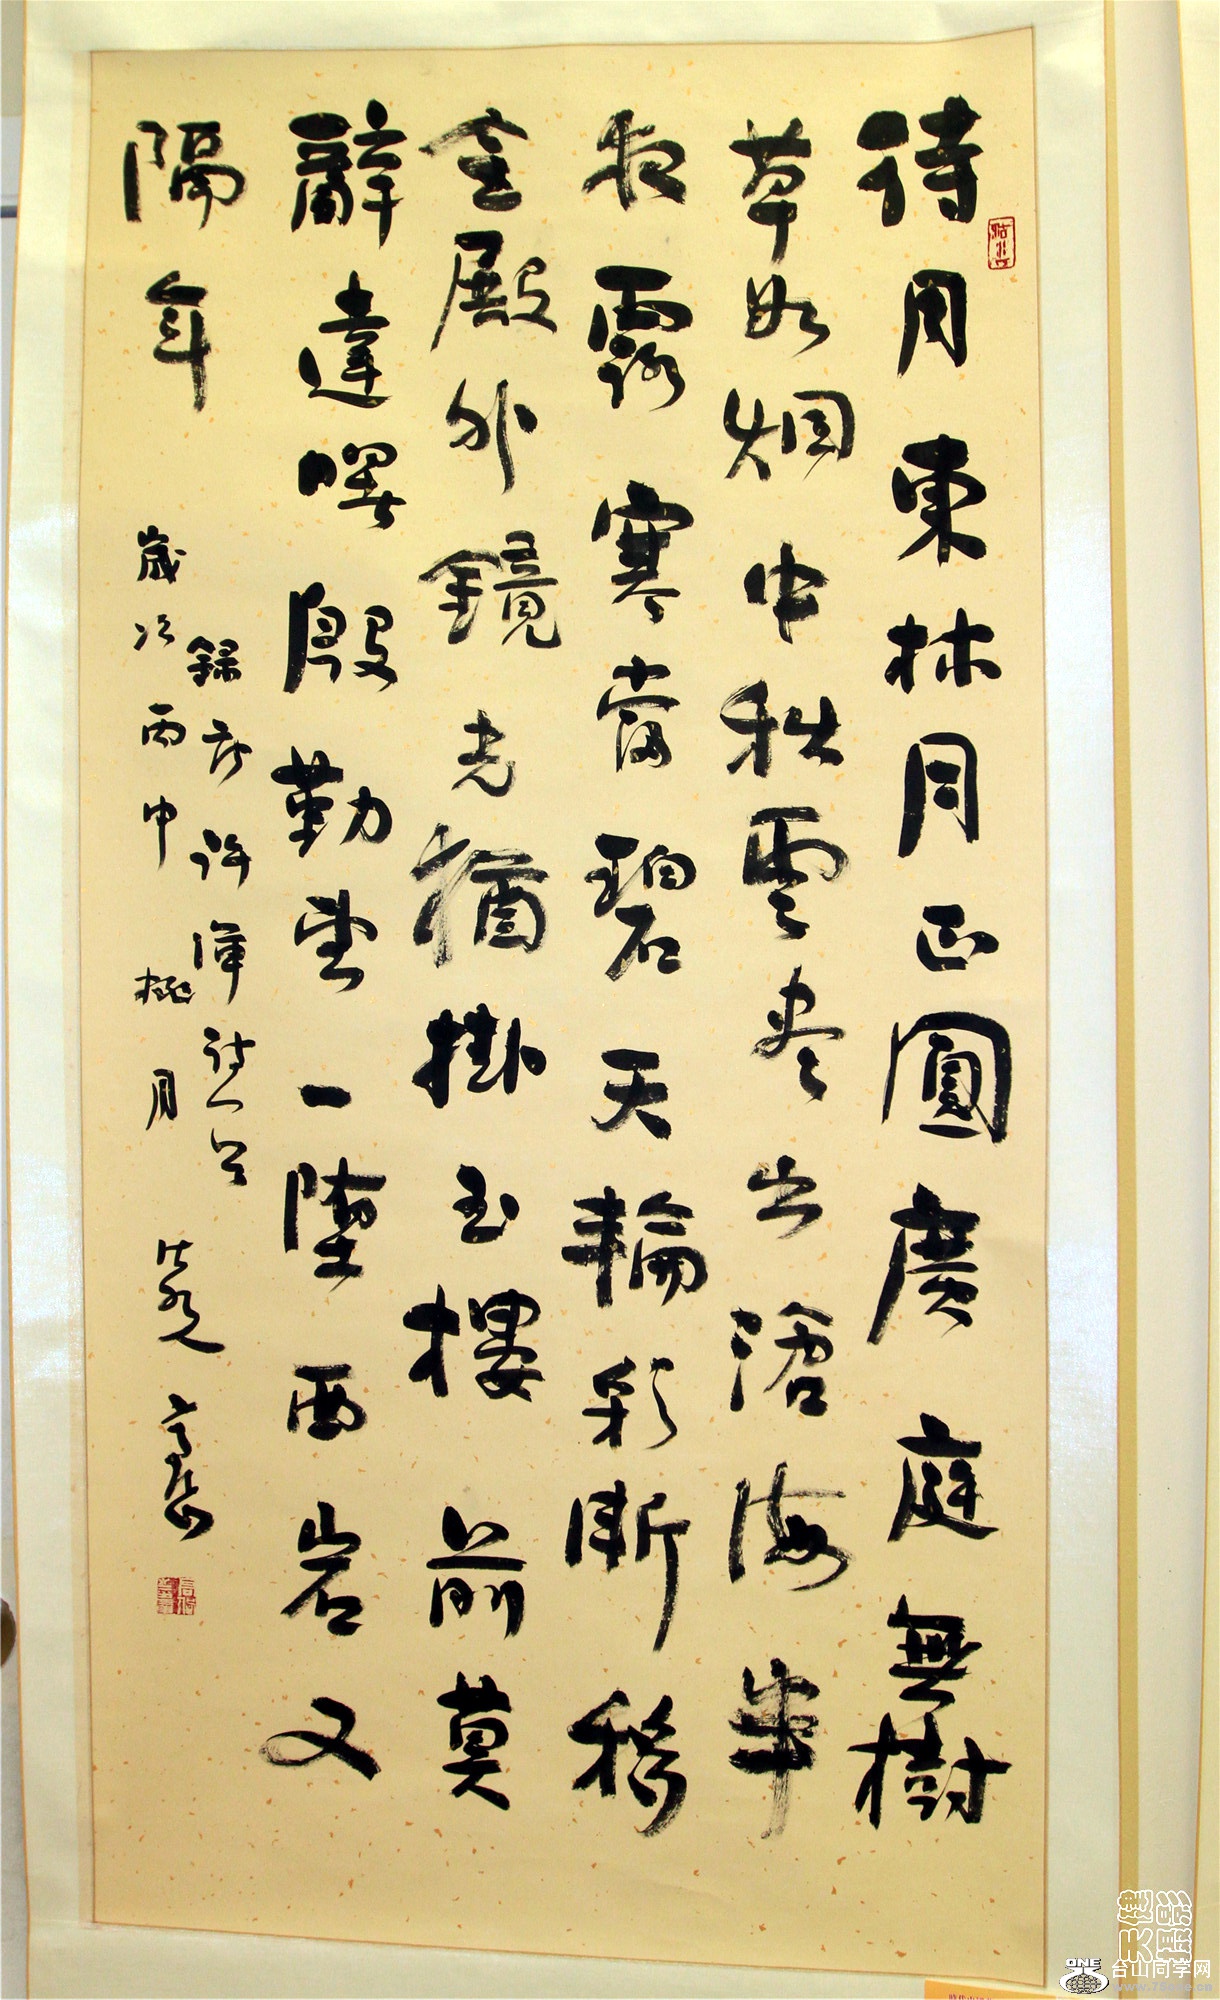 待月東林月正圓廣庭無樹
草如烟中秋雲尽出滄海半
夜露寒當碧天輪彩漸移
金殿外鏡光猶掛玉樓前莫
辭達曙殷勤望一墮西岩又
隔年
錄唐許渾詩一首
歲次丙申桃月
ONE
台山同学网